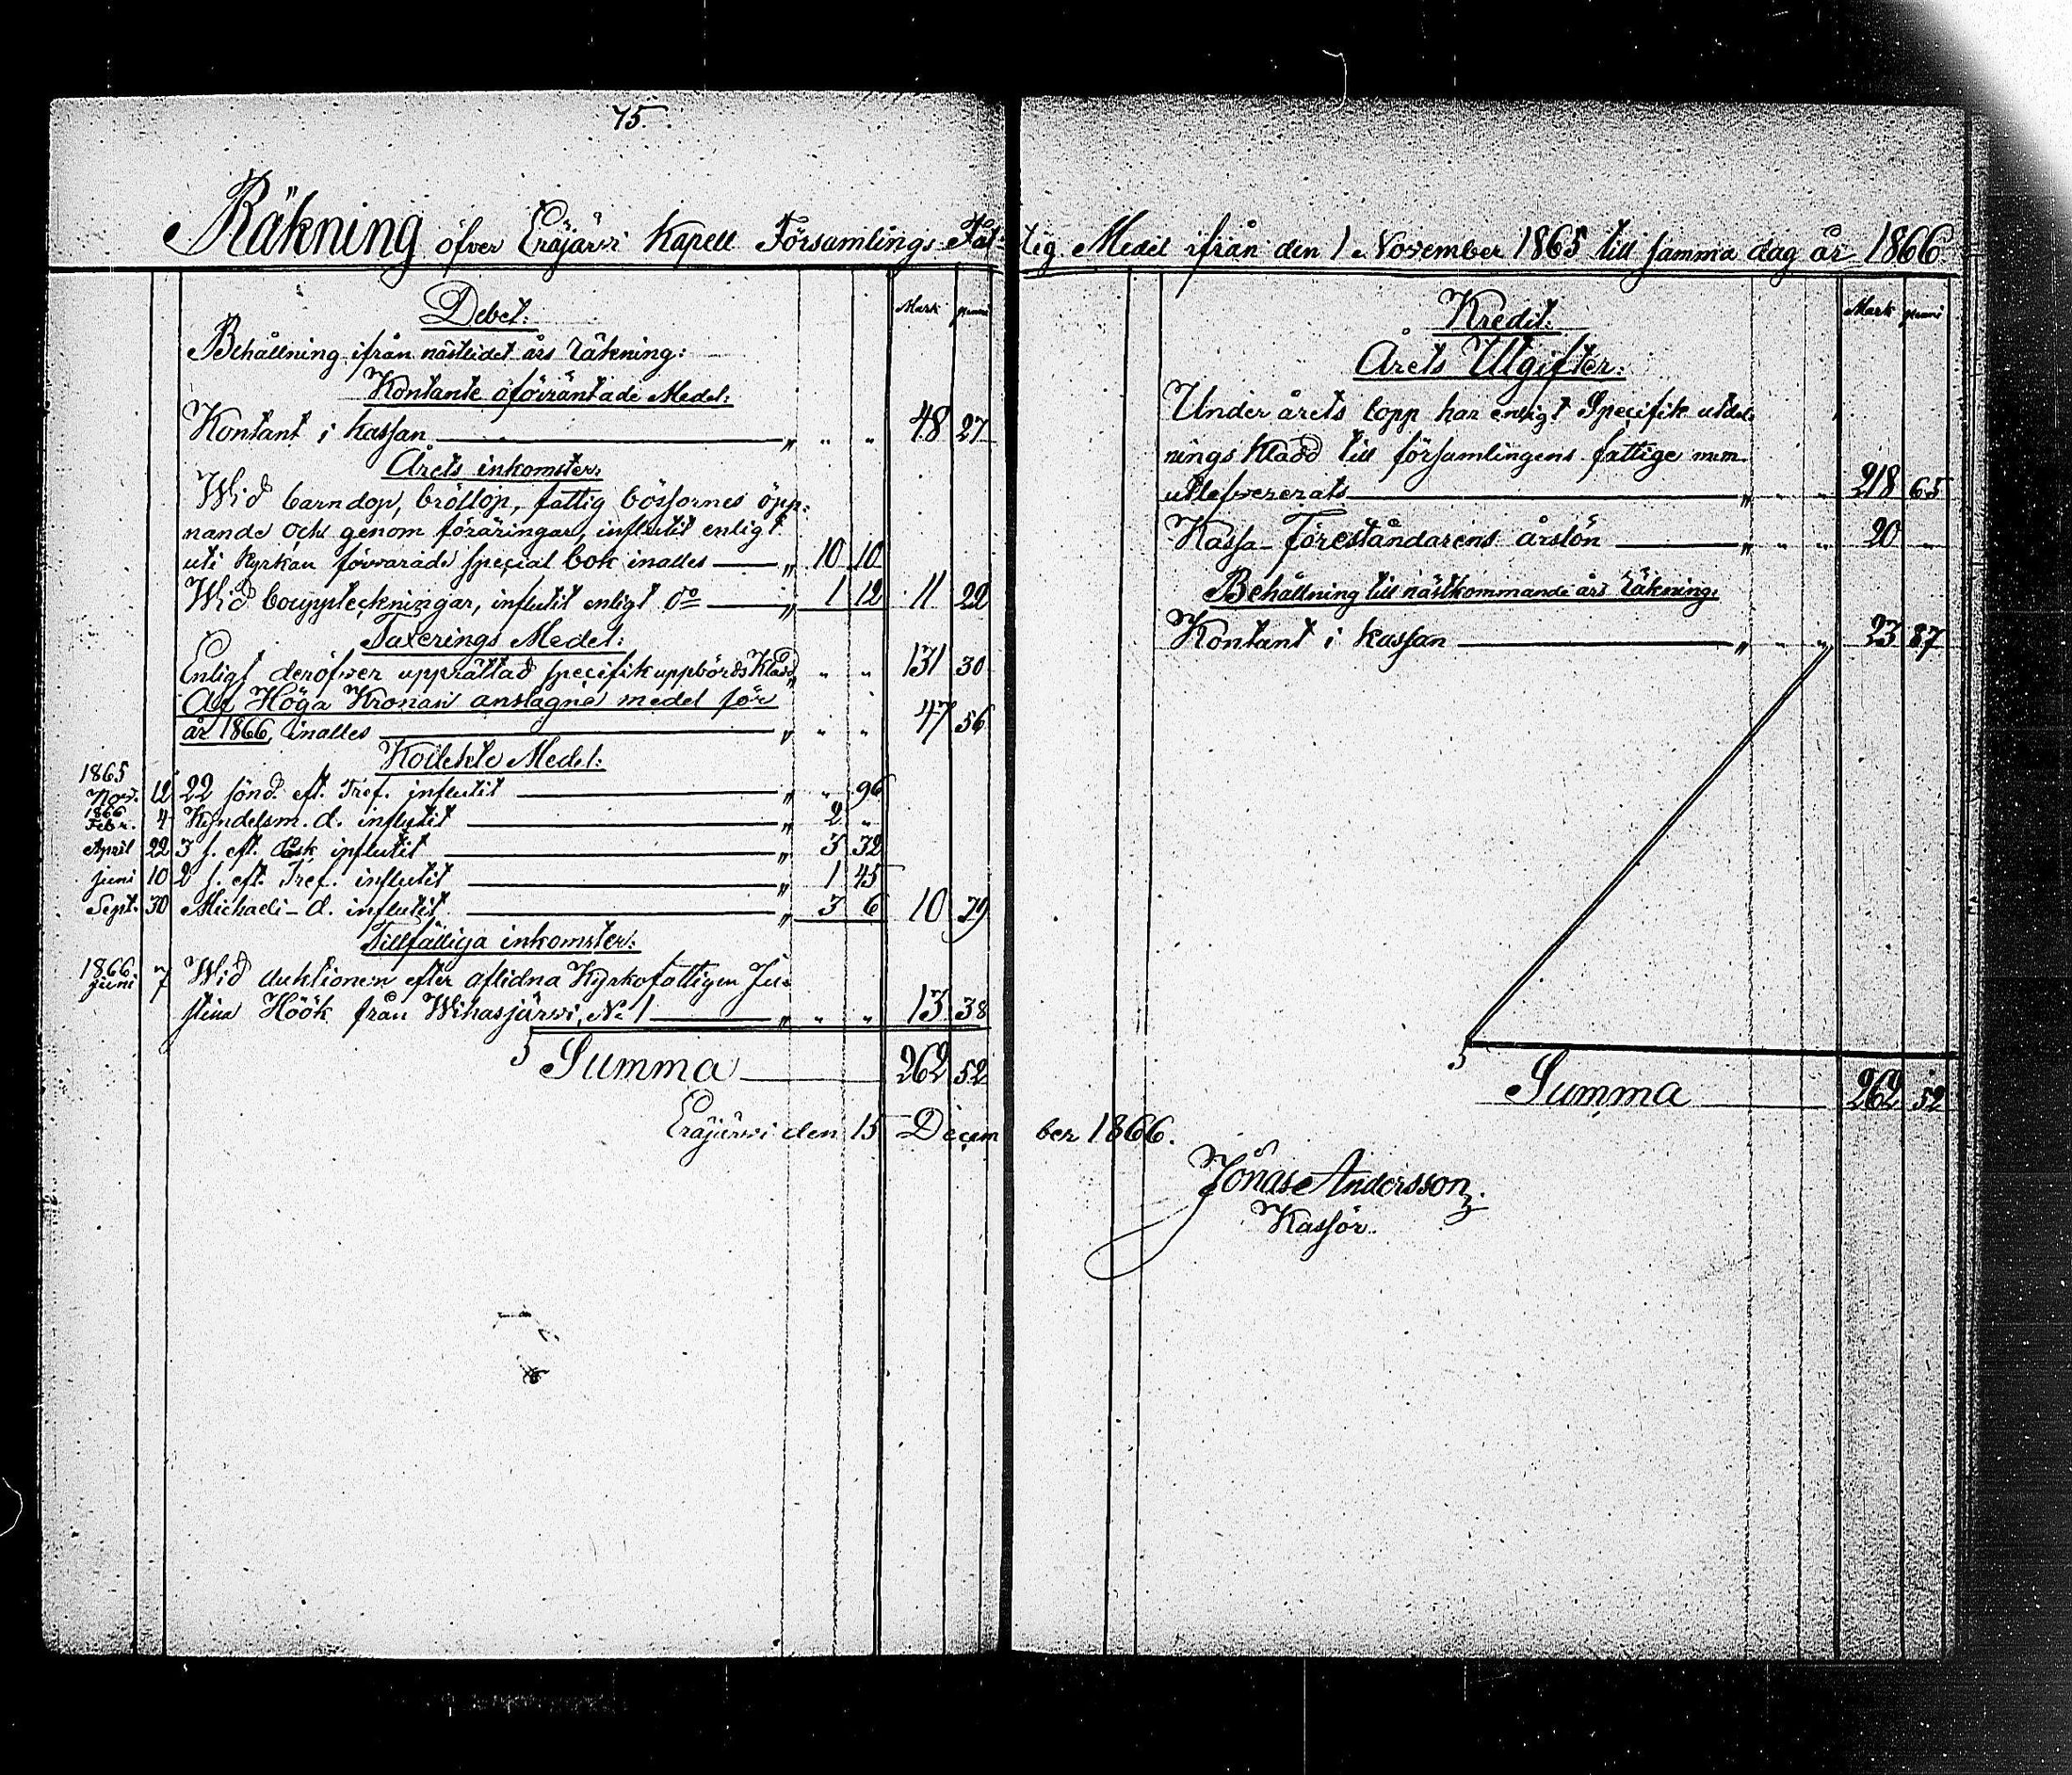 75.
Räkning öfver Eräjärvi Kapell Församlings Fat-
Debet:
Mark penni
Behållning ifrån nästledet års räkning:
Kontante oförräntade Medel:
Kontant i kassan „ „ „ 48 27
Årets inkomster:
Wid barndop, bröllop, fattig bössornes öpp-
nande och genom föräringar, influtit enligt
uti Kyrkan förvarade special bok inalles „ 10 10
Wid bouppteckningar, influtit enligt do „ 1 12 11 22
Taxerings Medel:
Enligt deröfver upprättad specifik uppbördsKladd „ „ „ 131 30
Af Höga Kronan anslagne medel för
år 1866, inalles „ „ „ 47 56
Kollekte Medel:
1865
Nov. 12 22 sönd. eft. Tref. influtit „ „ 96
1866
Febr. 4 Kyndelsm. d. influtit „ 2 „
April 22 3 s. eft. Påsk influtit „ 3 32
Juni 10 2 s. eft. Tref. influtit „ 1 45
Sept. 30 Michaeli-d. influtit „ 3 6 10 79
Tillfälliga inkomster:
1866
Juni 7 Wid auktionen efter aflidna Kyrkofattigen Ju-
stina Höök från Wihasjärvi, No 1 „ „ „ 13 38
Summa 262 52
Eräjärvi den 15 Decem
tig Medel ifrån den 1 November 1865 till samma dag år 1866
Kredit:
Mark penni
Årets Utgifter:
Under årets lopp har enligt Specifik utdel-
nings Kladd till församlingens fattige
utlefvererats „ „ „ 218 65
Kassa-Föreståndarens årslön „ „ „ 20 „
Behållning till nästkommande års räkning:
Kontant i kassan „ „ „ 23 87
Summa 262 52
ber 1866.
Jonas Andersson
Kassör.